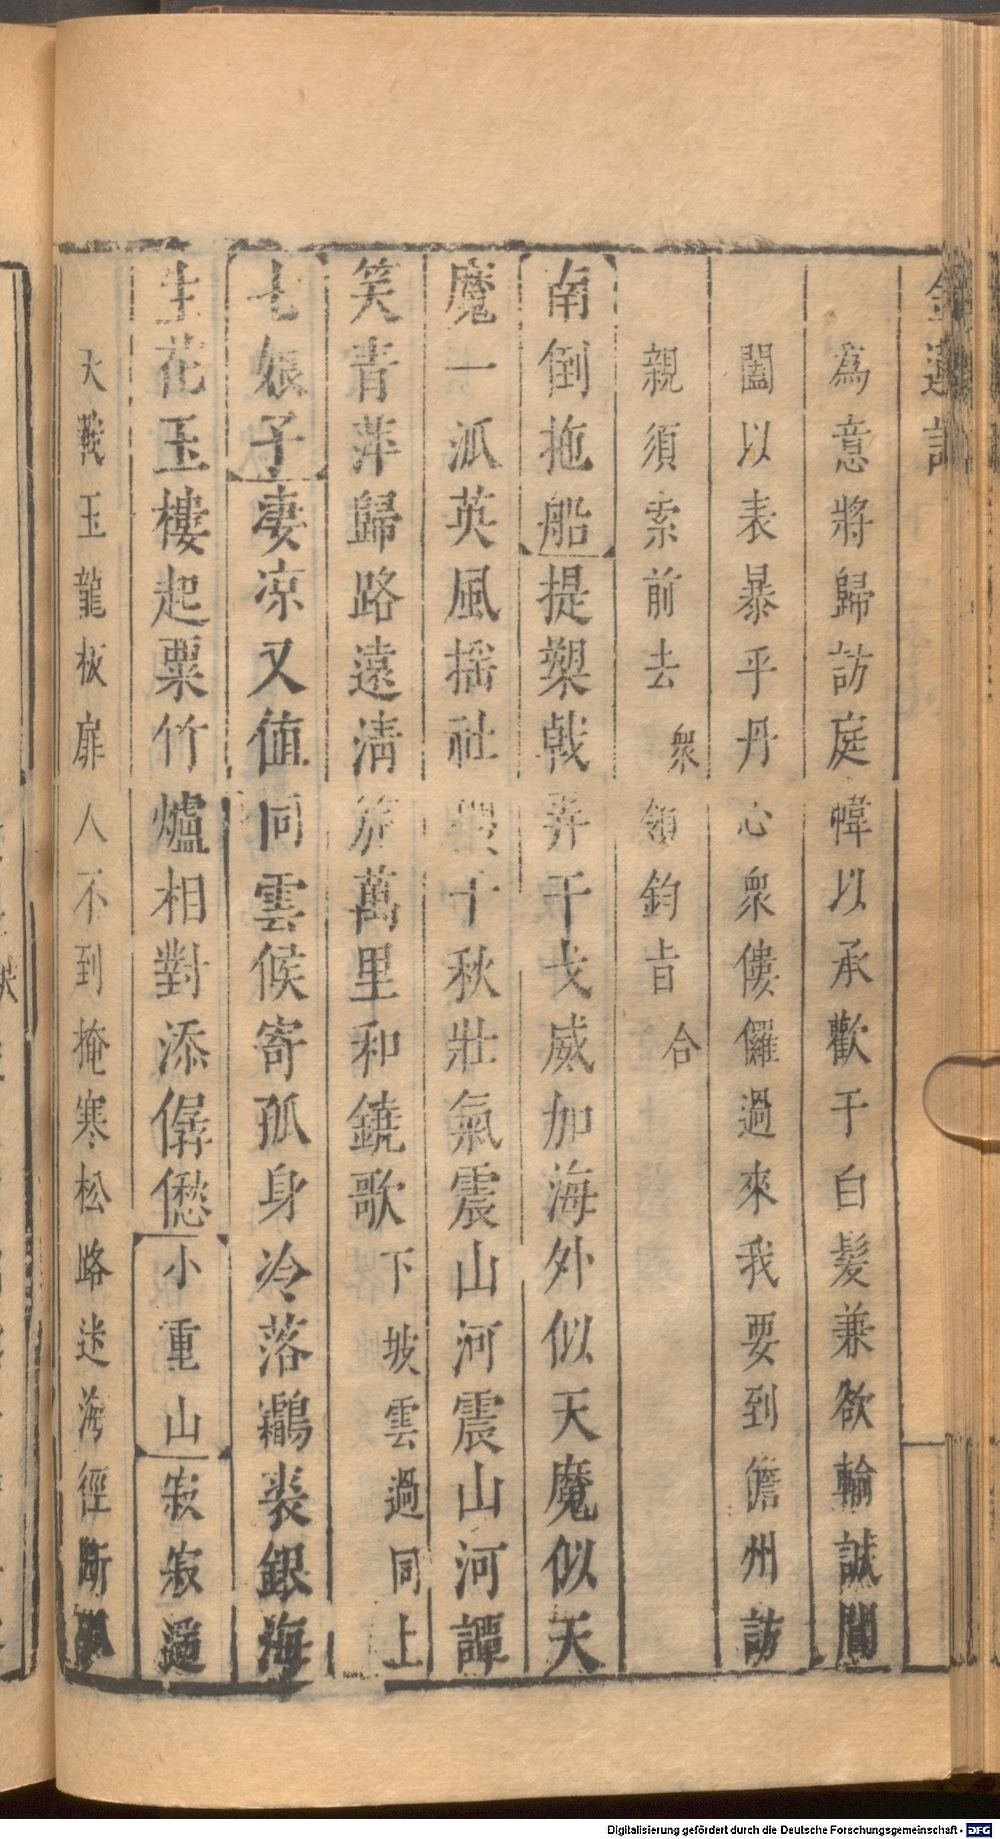 金蓮記
為意將歸訪庭幃以承歡于白髮兼欲輸誠閫
闔以表暴乎丹心衆僂儸過來我要到儋州訪
親須索前去衆領鈞旨合
南倒拖船提槊戟弄干戈威加海外似天魔似天
魔一派英風揺社稷千秋壯氣震山河震山河譚
笑青萍歸路遠清笳萬里和鐃歌下坡雲過同上
七娘子凄凉又值同雲候寄孤身冷落鸘裘銀海
生花玉樓起粟竹爐相對添僝僽小重山寂寂
大戰玉龍板扉人不到掩寒松路迷海徑斷
Digitalisierung gefördert durch die Deutsche Forschungsgemeinschaft - DFG